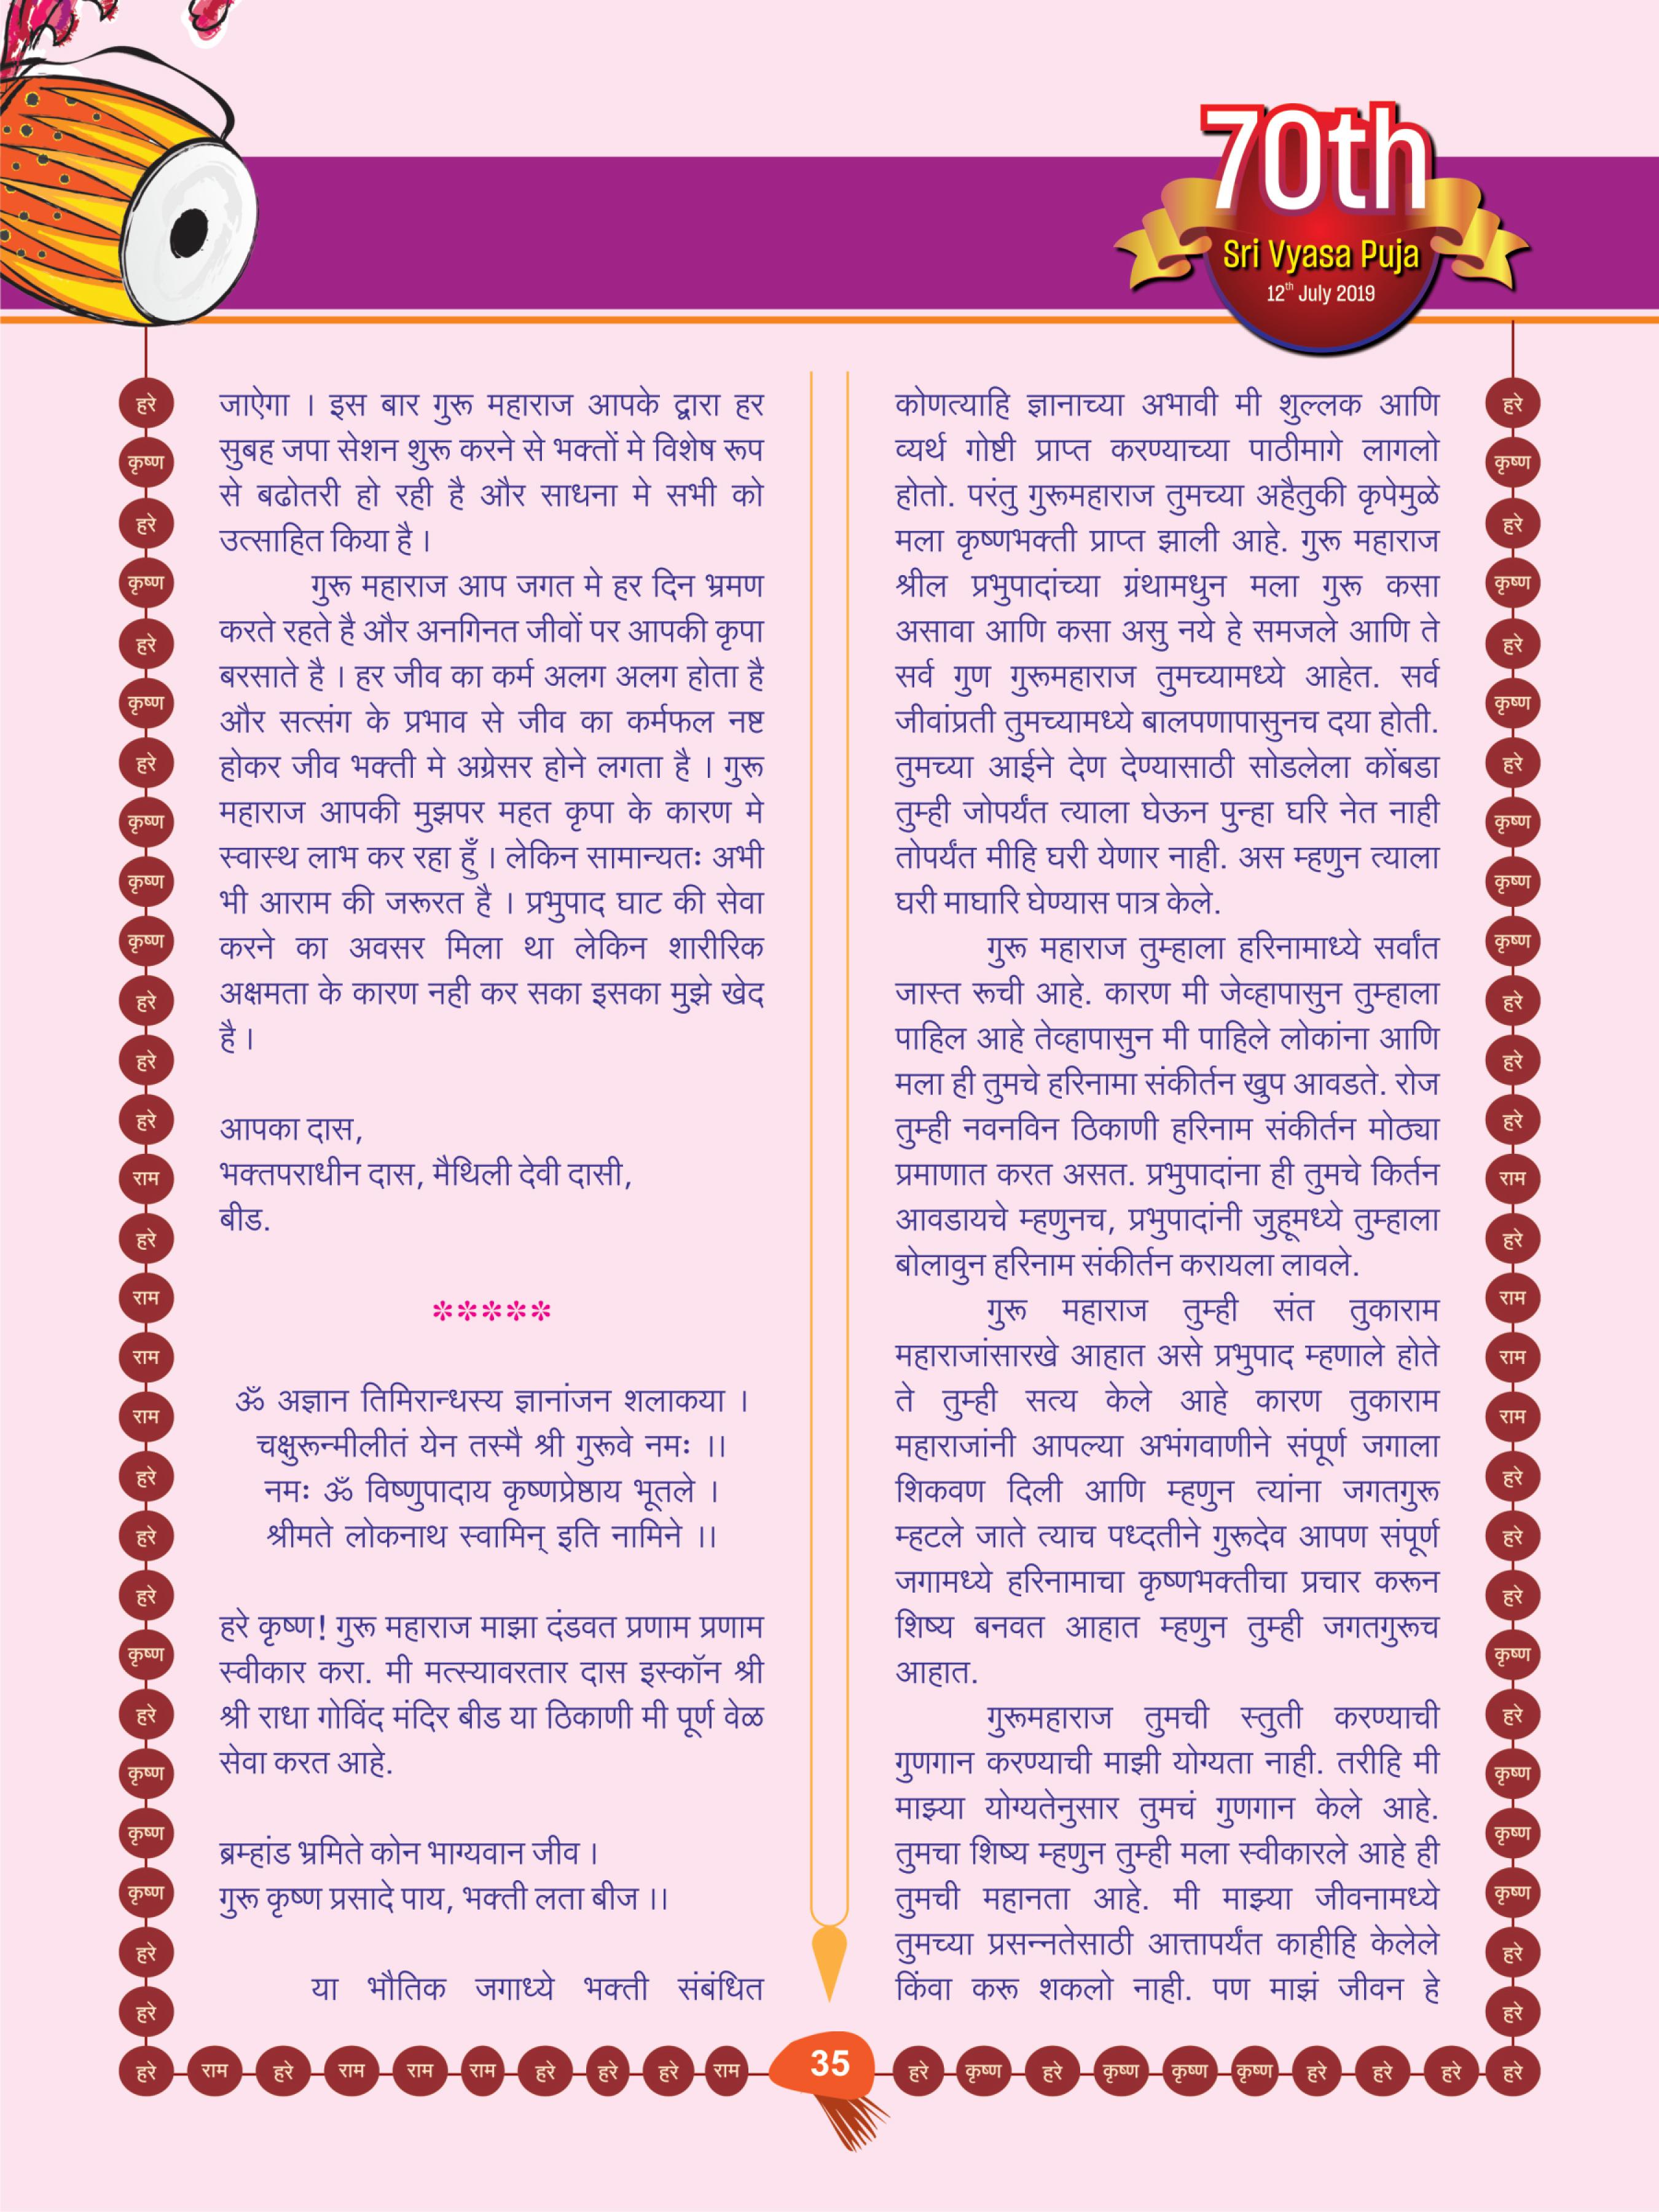 70th
Sri Vyasa Puja
12th July 2019
जाऐगा । इस बार गुरू महाराज आपके द्वारा हर
सुबह जपा सेशन शुरू करने से भक्तों मे विशेष रूप
से बढोतरी हो रही है और साधना मे सभी को
उत्साहित किया है ।
गुरू महाराज आप जगत मे हर दिन भ्रमण
करते रहते है और अनगिनत जीवों पर आपकी कृपा
बरसाते है । हर जीव का कर्म अलग अलग होता है
और सत्संग के प्रभाव से जीव का कर्मफल नष्ट
होकर जीव भक्ती मे अग्रेसर होने लगता है । गुरू
महाराज आपकी मुझपर महत कृपा के कारण मे
स्वास्थ लाभ कर रहा हुँ । लेकिन सामान्यतः अभी
भी आराम की जरूरत है । प्रभुपाद घाट की सेवा
करने का अवसर मिला था लेकिन शारीरिक
अक्षमता के कारण नही कर सका इसका मुझे खेद
है ।
आपका दास,
भक्तपराधीन दास, मैथिली देवी दासी,
बीड.
*****
ॐ अज्ञान तिमिरान्धस्य ज्ञानांजन शलाकया ।
चक्षुरून्मीलीतं येन तस्मै श्री गुरूवे नमः ।।
नमः ॐ विष्णुपादाय कृष्णप्रेष्ठाय भूतले ।
श्रीमते लोकनाथ स्वामिन् इति नामिने ।।
हरे कृष्ण! गुरू महाराज माझा दंडवत प्रणाम प्रणाम
स्वीकार करा. मी मत्स्यावरतार दास इस्कॉन श्री
श्री राधा गोविंद मंदिर बीड या ठिकाणी मी पूर्ण वेळ
सेवा करत आहे.
ब्रम्हांड भ्रमिते कोन भाग्यवान जीव ।
गुरू कृष्ण प्रसादे पाय, भक्ती लता बीज ।।
या भौतिक जगाध्ये भक्ती संबंधित
कोणत्याहि ज्ञानाच्या अभावी मी शुल्लक आणि
व्यर्थ गोष्टी प्राप्त करण्याच्या पाठीमागे लागलो
होतो. परंतु गुरूमहाराज तुमच्या अहैतुकी कृपेमुळे
मला कृष्णभक्ती प्राप्त झाली आहे. गुरू महाराज
श्रील प्रभुपादांच्या ग्रंथामधुन मला गुरू कसा
असावा आणि कसा असु नये हे समजले आणि ते
सर्व गुण गुरूमहाराज तुमच्यामध्ये आहेत. सर्व
जीवांप्रती तुमच्यामध्ये बालपणापासुनच दया होती.
तुमच्या आईने देण देण्यासाठी सोडलेला कोंबडा
तुम्ही जोपर्यंत त्याला घेऊन पुन्हा घरि नेत नाही
तोपर्यंत मीहि घरी येणार नाही. अस म्हणुन त्याला
घरी माघारि घेण्यास पात्र केले.
गुरू महाराज तुम्हाला हरिनामाध्ये सर्वांत
जास्त रूची आहे. कारण मी जेव्हापासुन तुम्हाला
पाहिल आहे तेव्हापासुन मी पाहिले लोकांना आणि
मला ही तुमचे हरिनामा संकीर्तन खुप आवडते. रोज
तुम्ही नवनविन ठिकाणी हरिनाम संकीर्तन मोठ्या
प्रमाणात करत असत. प्रभुपादांना ही तुमचे किर्तन
आवडायचे म्हणुनच, प्रभुपादांनी जुहूमध्ये तुम्हाला
बोलावुन हरिनाम संकीर्तन करायला लावले.
गुरू महाराज तुम्ही संत तुकाराम
महाराजांसारखे आहात असे प्रभुपाद म्हणाले होते
ते तुम्ही सत्य केले आहे कारण तुकाराम
महाराजांनी आपल्या अभंगवाणीने संपूर्ण जगाला
शिकवण दिली आणि म्हणुन त्यांना जगतगुरू
म्हटले जाते त्याच पध्दतीने गुरूदेव आपण संपूर्ण
जगामध्ये हरिनामाचा कृष्णभक्तीचा प्रचार करून
शिष्य बनवत आहात म्हणुन तुम्ही जगतगुरूच
आहात.
गुरूमहाराज तुमची स्तुती करण्याची
गुणगान करण्याची माझी योग्यता नाही. तरीहि मी
माझ्या योग्यतेनुसार तुमचं गुणगान केले आहे.
तुमचा शिष्य म्हणुन तुम्ही मला स्वीकारले आहे ही
तुमची महानता आहे. मी माझ्या जीवनामध्ये
तुमच्या प्रसन्नतेसाठी आत्तापर्यंत काहीहि केलेले
किंवा करू शकलो नाही. पण माझं जीवन हे
हरे
कृष्ण
हरे
कृष्ण
हरे
कृष्ण
हरे
कृष्ण
कृष्ण
कृष्ण
हरे
हरे
हरे
राम
हरे
राम
राम
राम
हरे
हरे
हरे
कृष्ण
हरे
कृष्ण
कृष्ण
कृष्ण
हरे
हरे
हरे
कृष्ण
हरे
कृष्ण
हरे
कृष्ण
हरे
कृष्ण
कृष्ण
कृष्ण
हरे
हरे
हरे
राम
हरे
राम
राम
राम
हरे
हरे
हरे
कृष्ण
हरे
कृष्ण
कृष्ण
कृष्ण
हरे
हरे
हरे राम हरे राम राम राम हरे हरे हरे राम 35 हरे कृष्ण हरे कृष्ण कृष्ण कृष्ण हरे हरे हरे हरे